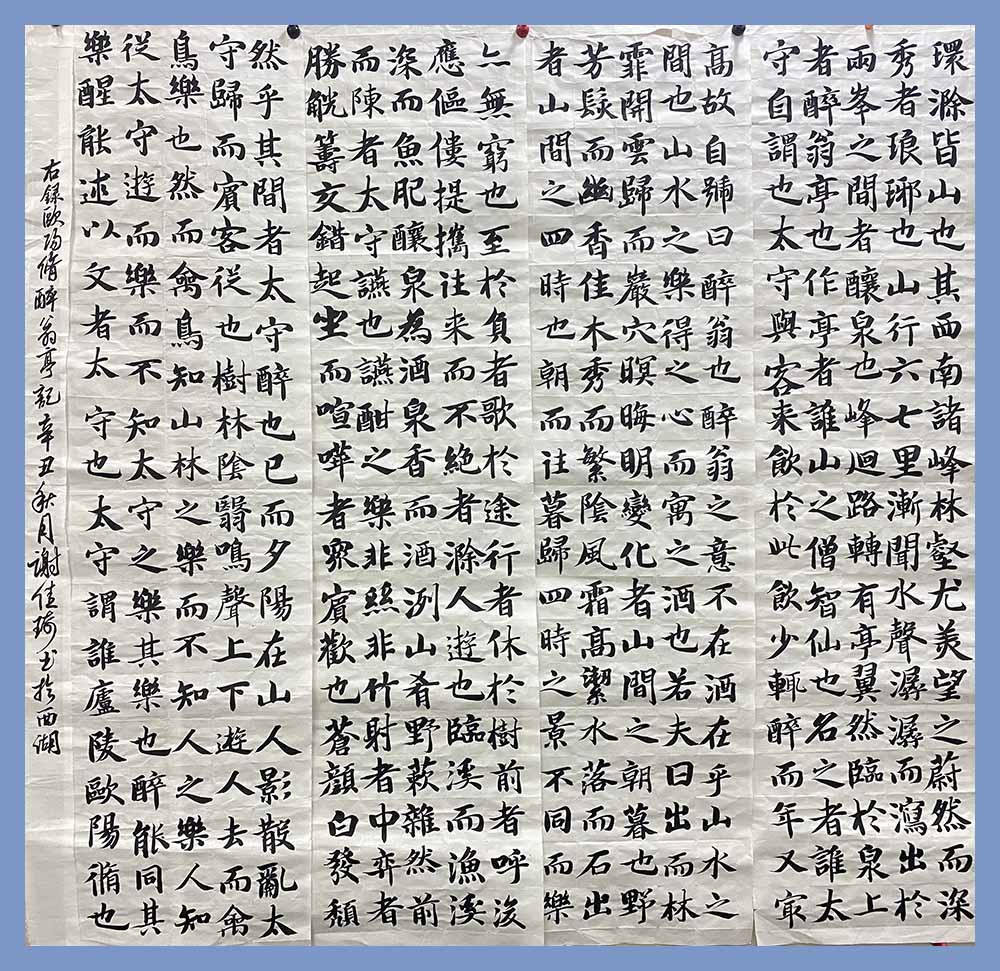 環滁皆山也其西南諸峰林壑尤美望之蔚然而深
秀者琅琊也山行六七里漸聞水聲潺潺而瀉出於
兩峯之間者釀泉也峰迴路轉有亭翼然臨於泉上
者醉翁亭也作亭者誰山之僧智仙也名之者誰太
守自謂也太守與客來飲於此飲少輒醉而年又冣
高故自號曰醉翁也醉翁之意不在酒在乎山水之
間也山水之樂得之心而寓之酒也若夫日出而林
霏開雲歸而巖穴暝晦明變化者山間之朝暮也野
芳髮而幽香佳木秀而繁陰風霜高潔水落而石出
者山間之四時也朝而往暮歸四時之景不同而樂
亦無窮也至於負者歌於途行者休於樹前者呼後
應傴僂提攜往來而不絕者滁人遊也臨溪而漁溪
深而魚肥釀泉為酒泉香而酒洌山肴野蔌雜然前
而陳者太守讌也讌酣之樂非絲非竹射者中弈者
勝觥籌交錯起坐而喧嘩者眾賓歡也蒼顏白發頹
然乎其間者太守醉也已而夕陽在山人影散亂太
守歸而賓客從也樹林陰翳鳴聲上下遊人去而禽
鳥樂也然而禽鳥知山林之樂而不知人之樂人知
從太守遊而樂而不知太守之樂其樂也醉能同其
樂醒能述以文者太守也太守謂誰廬陵歐陽脩也
右錄歐陽脩醉翁亭記辛丑秋月謝佳琦书於西湖